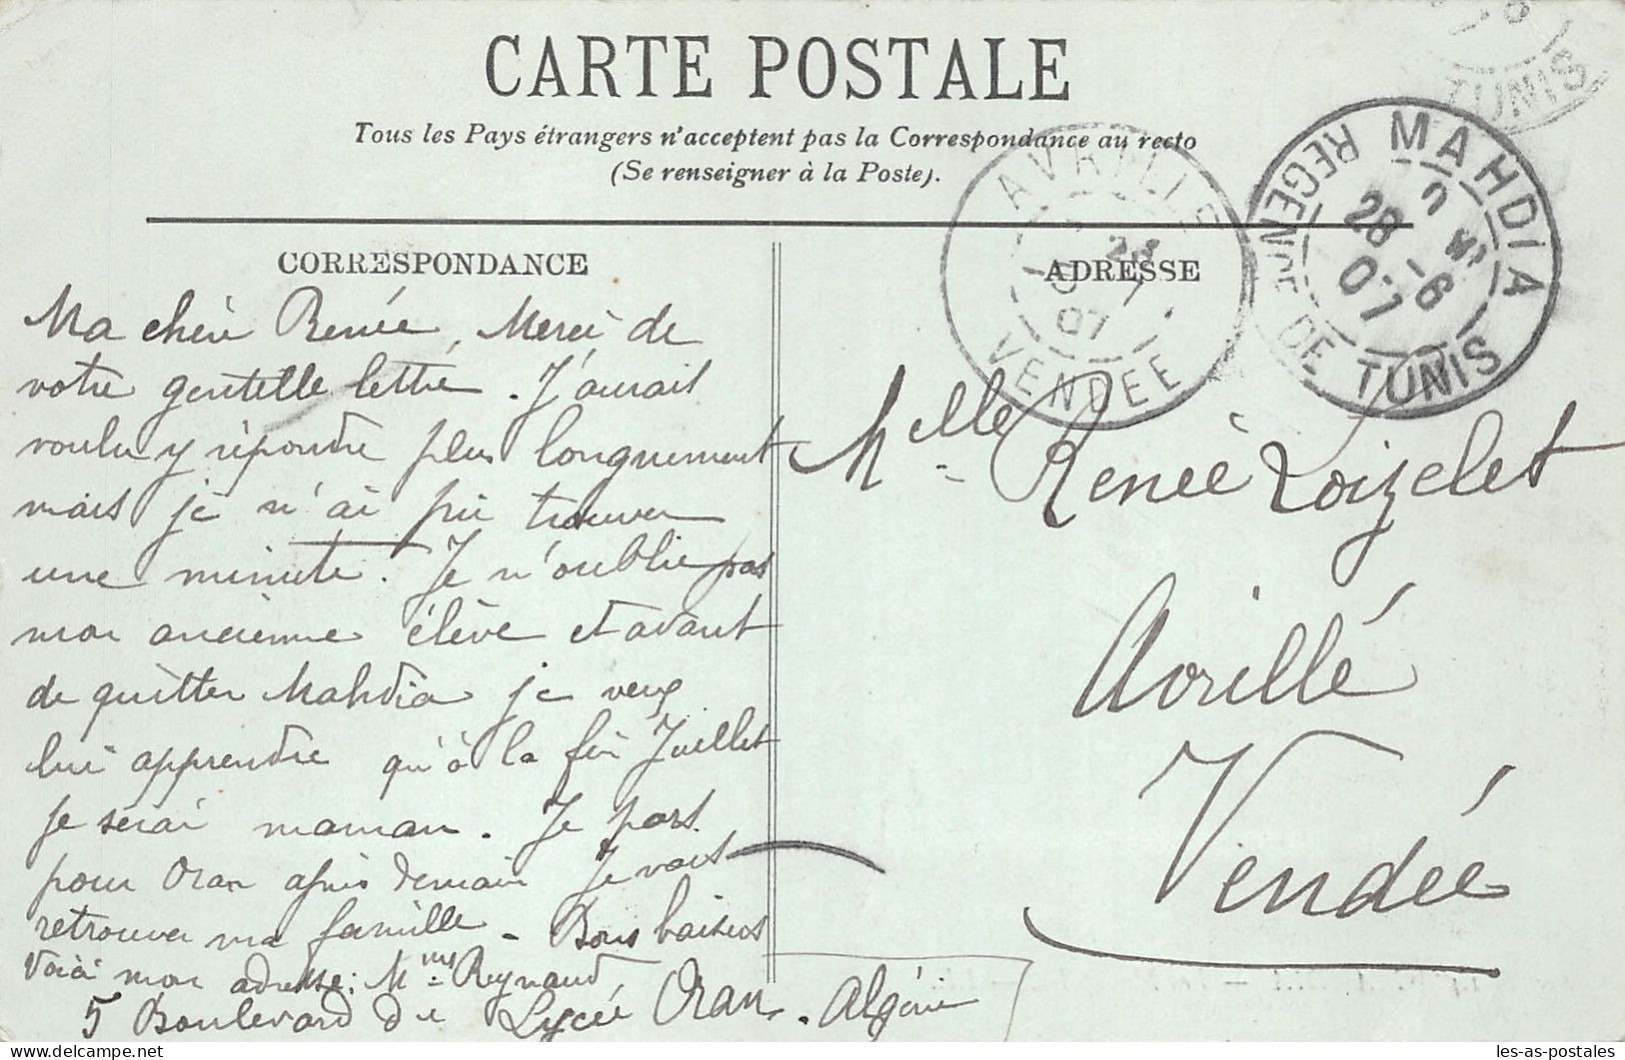 CARTE POSTALE
Tous les Pays étrangers n'acceptent pas la Correspondance au recto
(Se renseigner à la Poste).
CORRESPONDANCE
Ma chère Renée, Merci de
votre gentille lettre. J'aurais
voulu y répondre plus longuement
mais je n'ai pu trouver
une minute. Je n'oublie pas
mon ancienne élève et avant
de quitter Mahdia je veux
lui apprendre qu'à la fin Juillet
je serai maman. Je pars
pour Oran après demain Je vais
retrouver ma famille - Bons baisers
Voià mon adresse: Mme Reynaud
5 Boulevard du Lycée Oran - Algérie
ADRESSE
Melle Renée Loizelet
Avrillé
Vendée
AVRILLE
28
7
07
VENDEE
MAHDIA
28 - 6
07
REGENCE DE TUNIS
TUNIS
les-as-postales